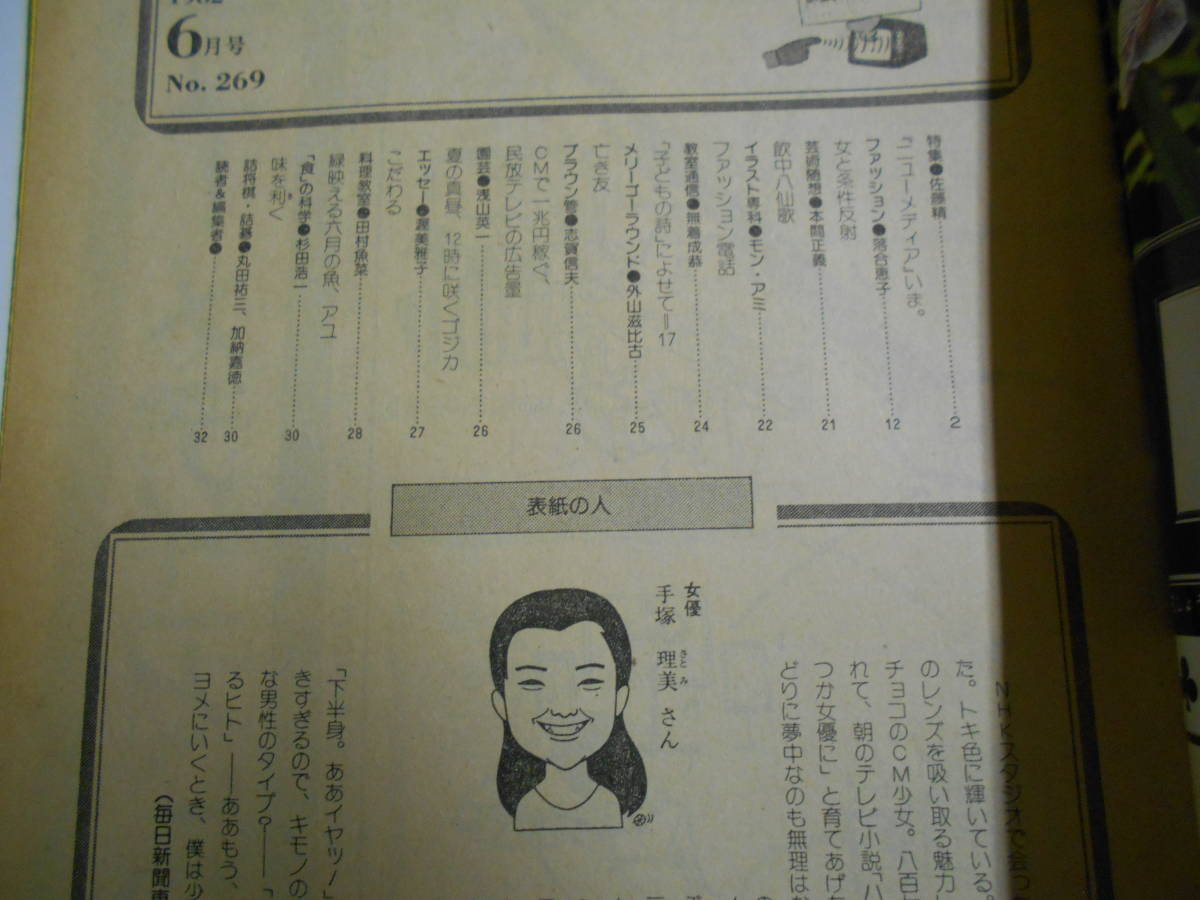 6月号
No. 269
特集●佐藤精
「ニューメディア」いま。……2
ファッション●落合恵子
女と条件反射……12
芸術随想●本間正義
飲中八仙歌……21
イラスト専科●モン・アミ
ファッション電話……22
教室通信●無着成恭
「子どもの詩」によせて=17……24
メリーゴーラウンド●外山滋比古
亡き友……25
ブラウン管●志賀信夫
CMで一兆円稼ぐ、
民放テレビの広告量……26
園芸●浅山英一
夏の真昼、12時に咲くゴジカ……26
エッセー●渥美雅子
こだわる……27
料理教室●田村魚菜
緑映える六月の魚、アユ……28
「食」の科学●杉田浩一
味を利く……30
詰将棋・詰碁●丸田祐三、加納嘉徳……30
読者&編集者●……32
表紙の人
女優
手塚 理美 さん
さとみ
NHKスタジオで会っ
た。トキ色に輝いている。
のレンズを吸い取る魅力
チョコのCM少女。八百
れて、朝のテレビ小説「八
つか女優に」と育てあげ
どりに夢中なのも無理は
「下半身。ああイヤッ!」
きすぎるので、キモノの
な男性のタイプ?――「
るヒト」――ああもう、
ヨメにいくとき、僕は少
(毎日新聞東